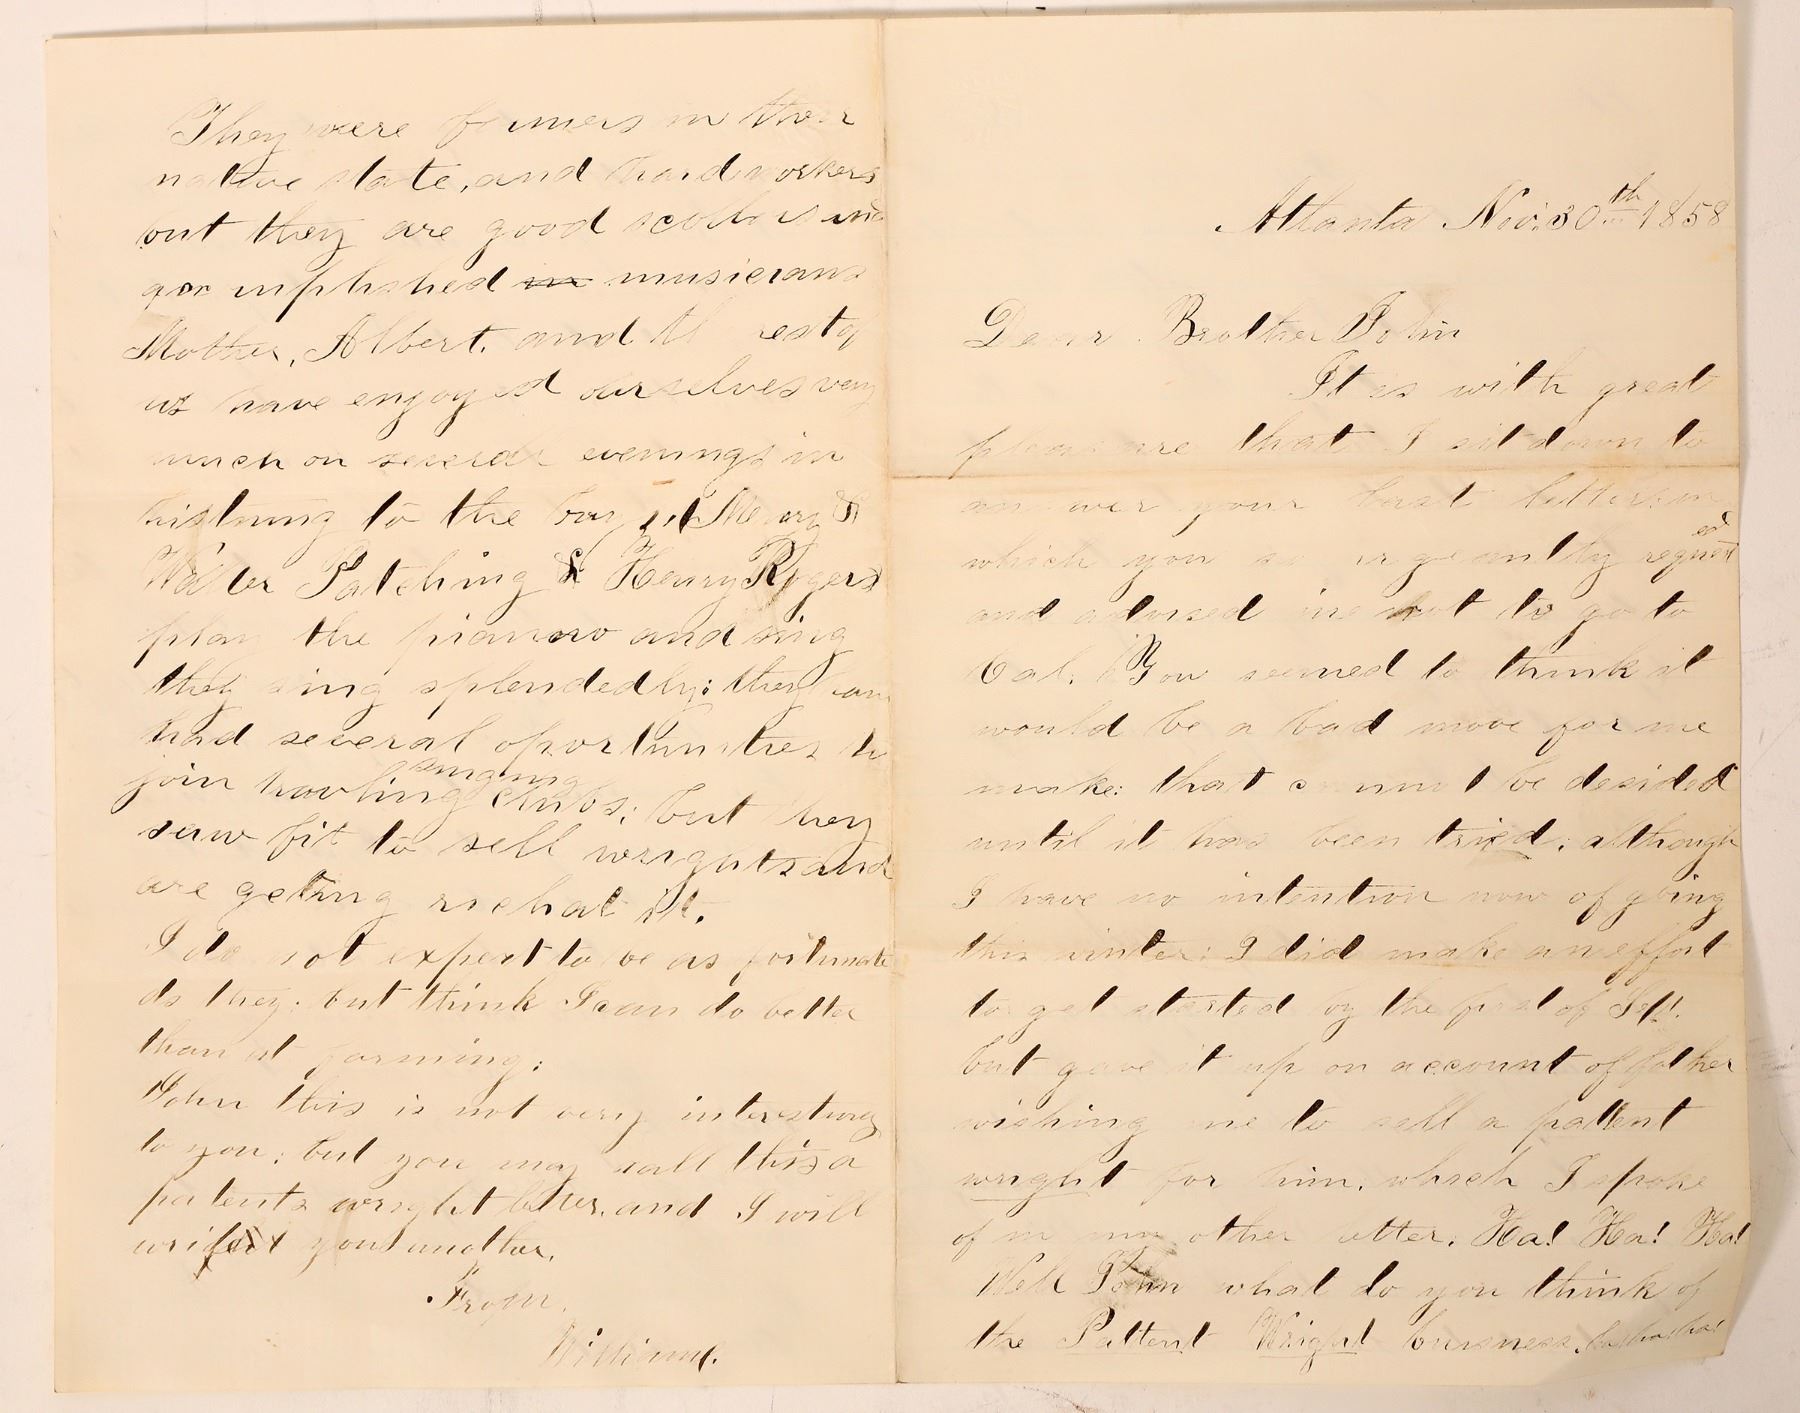 Atlanta Nov. 30th 1858
Dear Brother John
It is with great
pleasure that I sit down to
answer your last letter: in
which you so urgeantly requested
and advised me not to go to
Cal. You seemed to think it
would be a bad move for me
make: that cannot be desided
until it has been tried; although
I have no intention now of going
this winter: I did make an effort
to get started by the first of Sept.
but gave it up on account of father
wishing me to sell a pattent
wright for him, which I spoke
of in my other letter. Ha! Ha! Ha!
Well John what do you think of
the Pattent Wright buisness, ha! ha! ha!
They were farmers in their
native state, and hard workers
but they are good scollors and
acomplished in musicians
Mother, Albert, and the rest of
us have enjoyed ourselves very
much on several evenings in
listning to the boys
Walter Patching & Henry Rogers
play the pianno and sing
they sing splendedly: they have
had several oportunities to
join howling singing clubs; but they
saw fit to sell wrights and
are geting rich at it.
I do not expect to be as fortunate
as they: but think I can do better
than at farming:
John this is not very interesting
to you; but you may call this a
patents wright letter, and I will
you another.
From,
William.